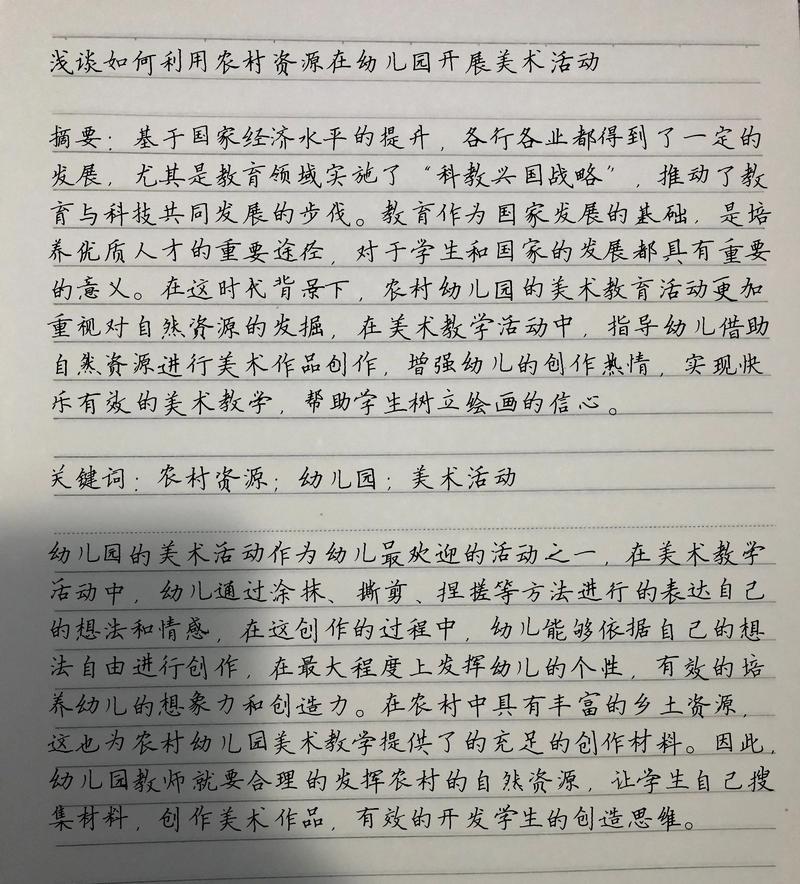 浅谈如何利用农村资源在幼儿园开展美术活动
摘要：基于国家经济水平的提升，各行各业都得到了一定的
发展，尤其是教育领域实施了“科教兴国战略”，推动了教
育与科技共同发展的步伐。教育作为国家发展的基础，是培
养优质人才的重要途径，对于学生和国家的发展都具有重要
的意义。在这时代背景下，农村幼儿园的美术教育活动更加
重视对自然资源的发掘，在美术教学活动中，指导幼儿借助
自然资源进行美术作品创作，增强幼儿的创作热情，实现快
乐有效的美术教学，帮助学生树立绘画的信心。
关键词：农村资源；幼儿园；美术活动
幼儿园的美术活动作为幼儿最欢迎的活动之一，在美术教学
活动中，幼儿通过涂抹、撕剪、捏搓等方法进行的表达自己
的想法和情感，在这创作的过程中，幼儿能够依据自己的想
法自由进行创作，在最大程度上发挥幼儿的个性，有效的培
养幼儿的想象力和创造力。在农村中具有丰富的乡土资源，
这也为农村幼儿园美术教学提供了的充足的创作材料。因此，
幼儿园教师就要合理的发挥农村的自然资源，让学生自己搜
集材料，创作美术作品，有效的开发学生的创造思维。